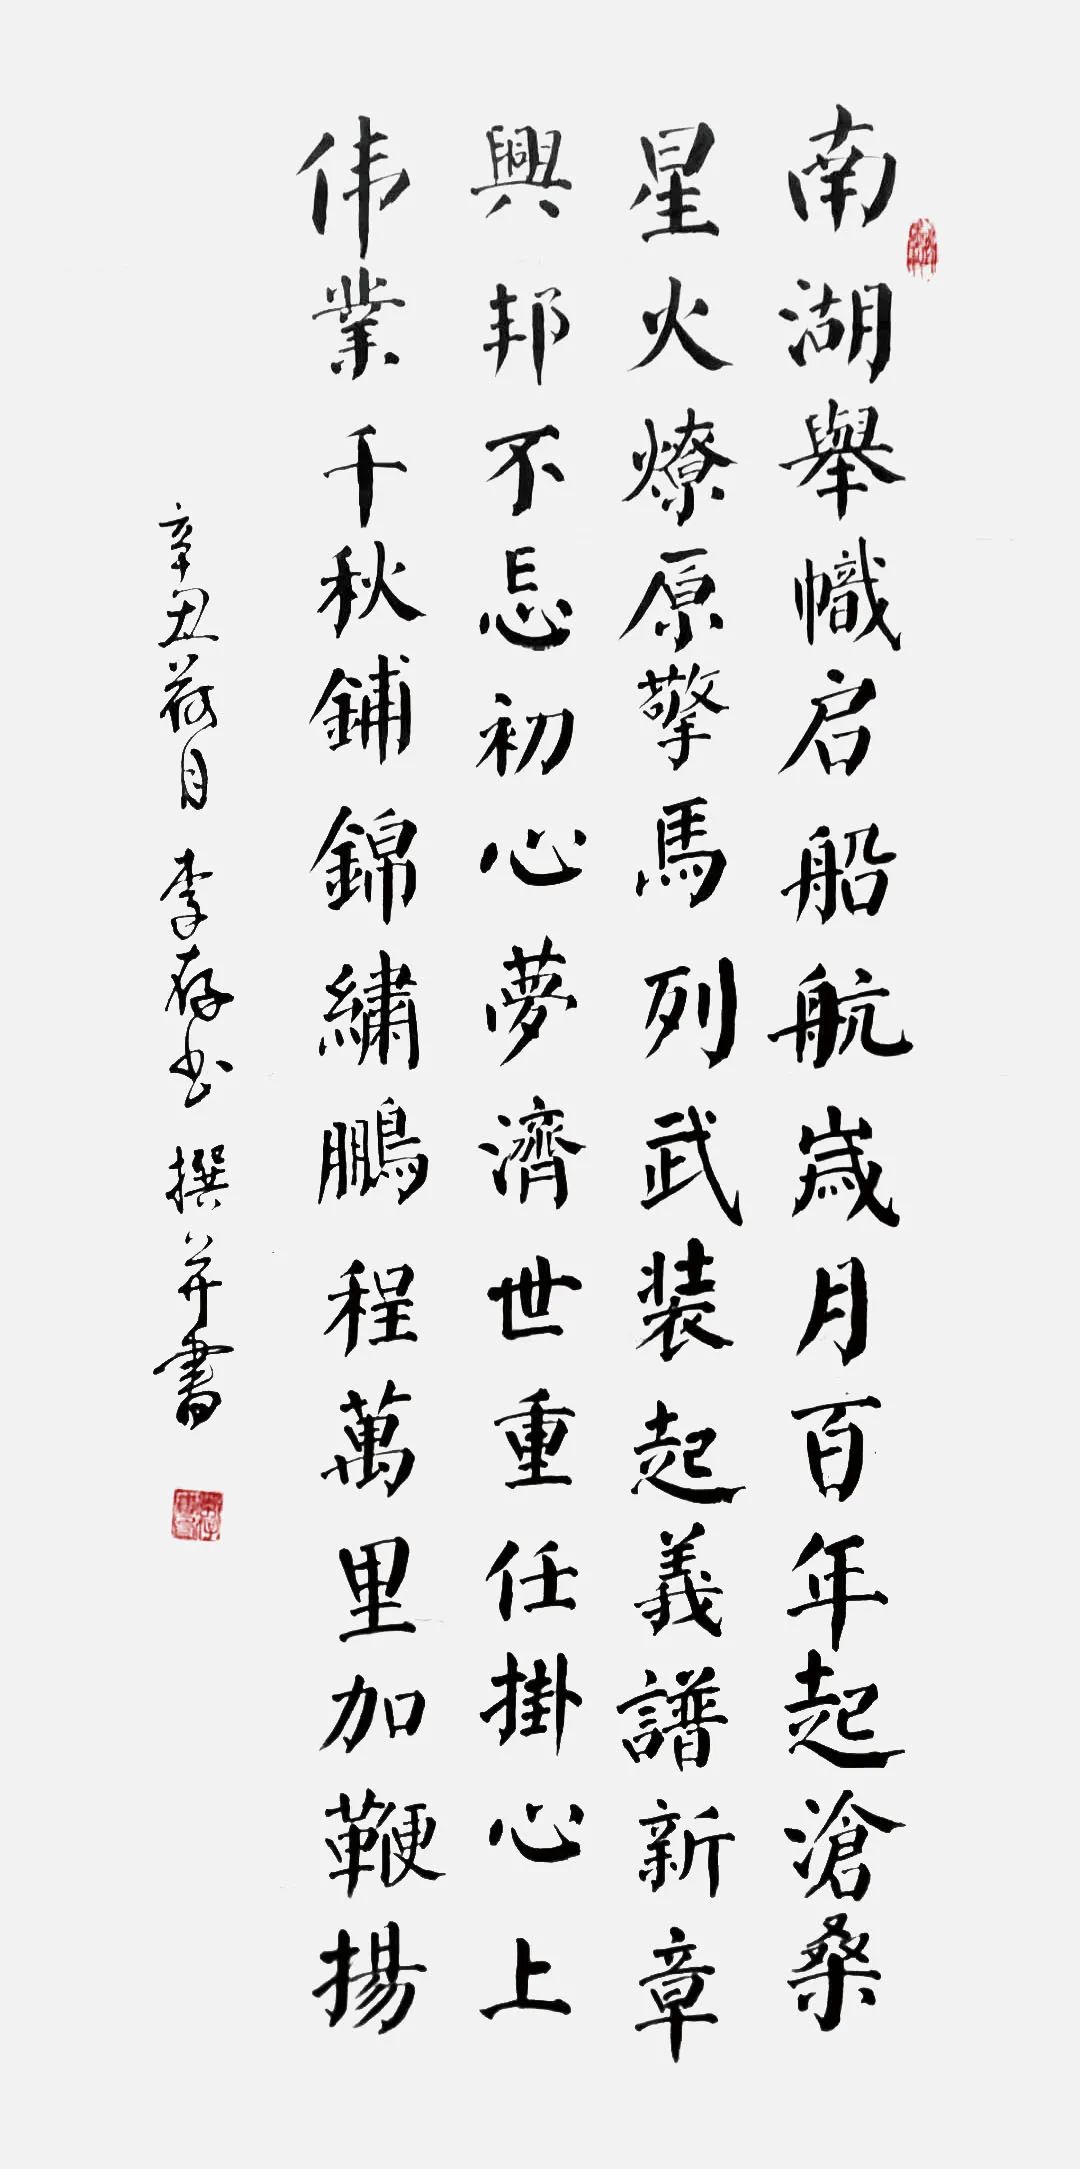 南湖舉幟启船航歲月百年起滄桑
星火燎原擎馬列武装起義譜新章
興邦不忘初心夢濟世重任掛心上
伟業千秋鋪錦繡鵬程萬里加鞭揚
辛丑荷月 李存书 撰并書